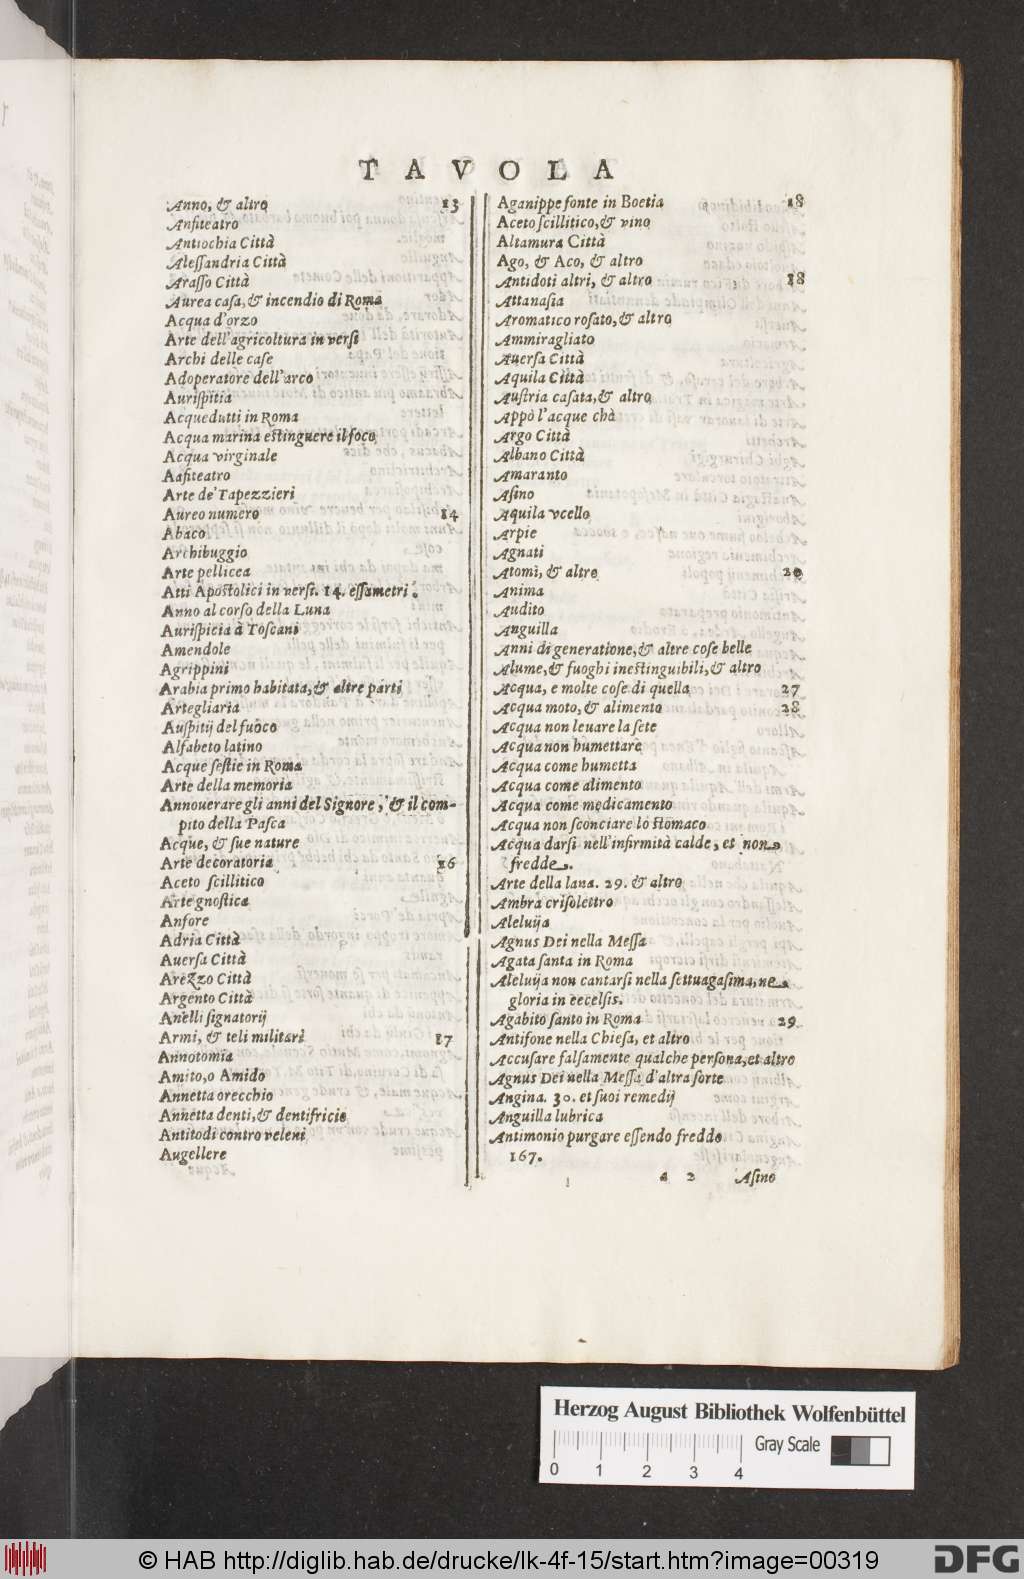 TAVOLA
Anno, & altro 13
Anfiteatro
Antiochia Città
Alessandria Città
Arasso Città
Aurea casa, & incendio di Roma
Acqua d'orzo
Arte dell'agricoltura in versi
Archi delle case
Adoperatore dell'arco
Aurispitia
Acquedutti in Roma
Acqua marina estinguere il foco
Acqua virginale
Aafiteatro
Arte de' Tapezzieri
Aureo numero 14
Abaco
Archibuggio
Arte pellicea
Atti Apostolici in versi. 14. essametri.
Anno al corso della Luna
Aurispicia à Toscani
Amendole
Agrippini
Arabia primo habitata, & altre parti
Artegliaria
Auspitij del fuoco
Alfabeto latino
Acque sestie in Roma
Arte della memoria
Annouerare gli anni del Signore, & il com-
pito della Pasca
Acque, & sue nature
Arte decoratoria 16
Aceto scillitico
Arte gnostica
Anfore
Adria Città
Auersa Città
Arezzo Città
Argento Città
Anelli signatorij
Armi, & teli militari 17
Annotomia
Amito, o Amido
Annetta orecchio
Annetta denti, & dentifricio
Antitodi contro veleni
Augellere
Aganippe fonte in Boetia 18
Aceto scillitico, & vino
Altamura Città
Ago, & Aco, & altro
Antidoti altri, & altro 18
Attanasia
Aromatico rosato, & altro
Ammiragliato
Auersa Città
Aquila Città
Austria casata, & altro
Appò l'acque chà
Argo Città
Albano Città
Amaranto
Asino
Aquila vcello
Arpie
Agnati
Atomi, & altro 20
Anima
Audito
Anguilla
Anni di generatione, & altre cose belle
Alume, & fuoghi inestinguibili, & altro
Acqua, e molte cose di quella 27
Acqua moto, & alimento 28
Acqua non leuare la sete
Acqua non humettare
Acqua come humetta
Acqua come alimento
Acqua come medicamento
Acqua non sconciare lo stomaco
Acqua darsi nell'infirmità calde, et non
fredde.
Arte della lana. 29. & altro
Ambra crisolettro
Aleluija
Agnus Dei nella Messa
Agata santa in Roma
Aleluija non cantarsi nella settuagasima, ne
gloria in eecelsis.
Agabito santo in Roma 29
Antifone nella Chiesa, et altro
Accusare falsamente qualche persona, et altro
Agnus Dei nella Messa d'altra sorte
Angina. 30. et suoi remedij
Anguilla lubrica
Antimonio purgare essendo freddo
167.
a 2 Asino
Herzog August Bibliothek Wolfenbüttel
Gray Scale
0 1 2 3 4
© HAB http://diglib.hab.de/drucke/lk-4f-15/start.htm?image=00319
DFG